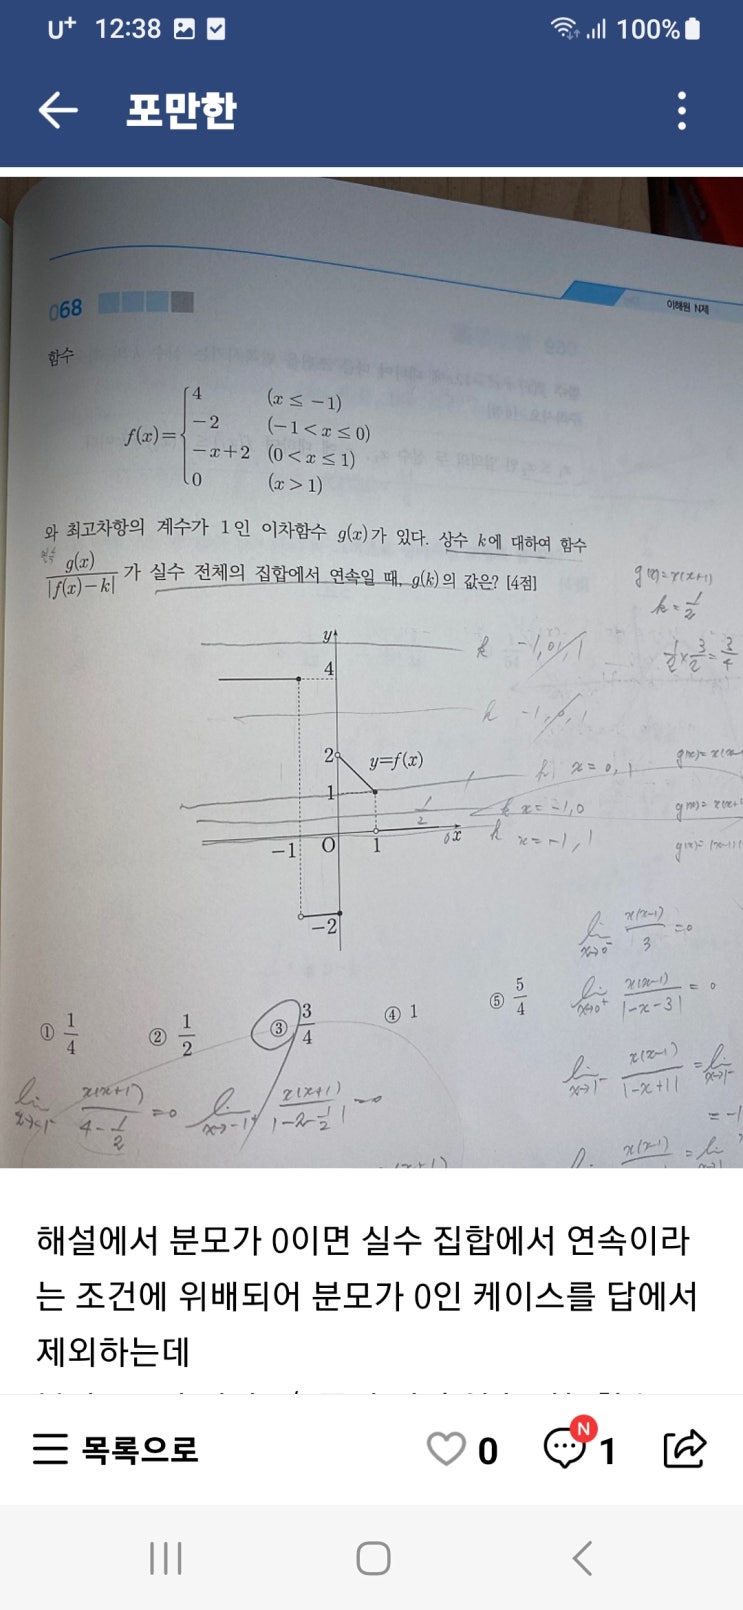 U+ 12:38 100%
포만한
068
이해원 N제
함수
f(x)=
4 (x≤-1)
-2 (-1<x≤0)
-x+2 (0<x≤1)
0 (x>1)
와 최고차항의 계수가 1인 이차함수 g(x)가 있다. 상수 k에 대하여 함수
g(x)/|f(x)-k| 가 실수 전체의 집합에서 연속일 때, g(k)의 값은? [4점]
g(x)=x(x+1)
k=1/2
1/2×3/2=3/4
y
k -1,0,1
4
k -1,0,1
2 y=f(x)
k x=0,1
1
1/2
k x=-1,0
-1 O 1 x
k x=-1,1
-2
lim x→0- x(x-1)/3 =0
① 1/4 ② 1/2 ③ 3/4 ④ 1 ⑤ 5/4
lim x→0+ x(x-1)/|-x-3| = 0
lim x→1- x(x-1)/|-x+1| = lim x→1-
= -1
x(x+1)/4-1/2 =0 lim x→-1+ x(x+1)/|-2-1/2| =0
해설에서 분모가 0이면 실수 집합에서 연속이라
는 조건에 위배되어 분모가 0인 케이스를 답에서
제외하는데
목록으로 0 N 1